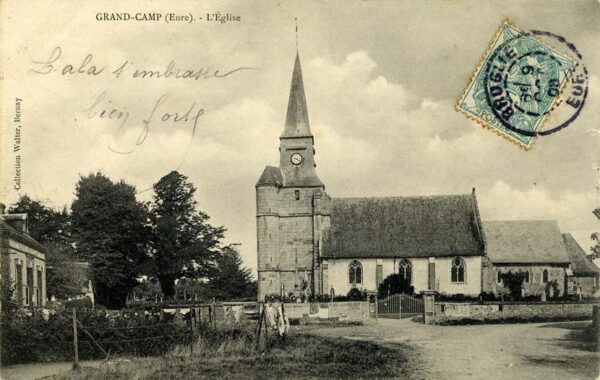 GRAND-CAMP (Eure). - L'Église
Lala t'embrasse
bien fort
Collection Walter, Bernay
BROGLIE
9
08
EURE
POSTES